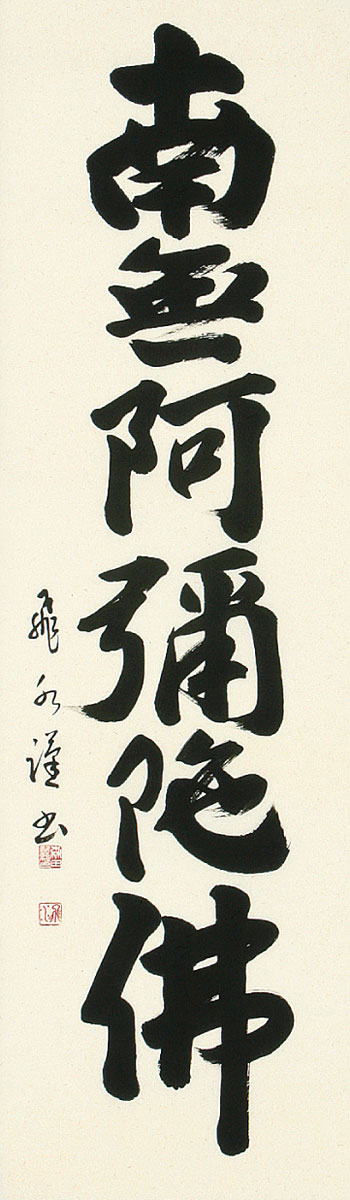 南無阿彌陀佛
飛水謹書